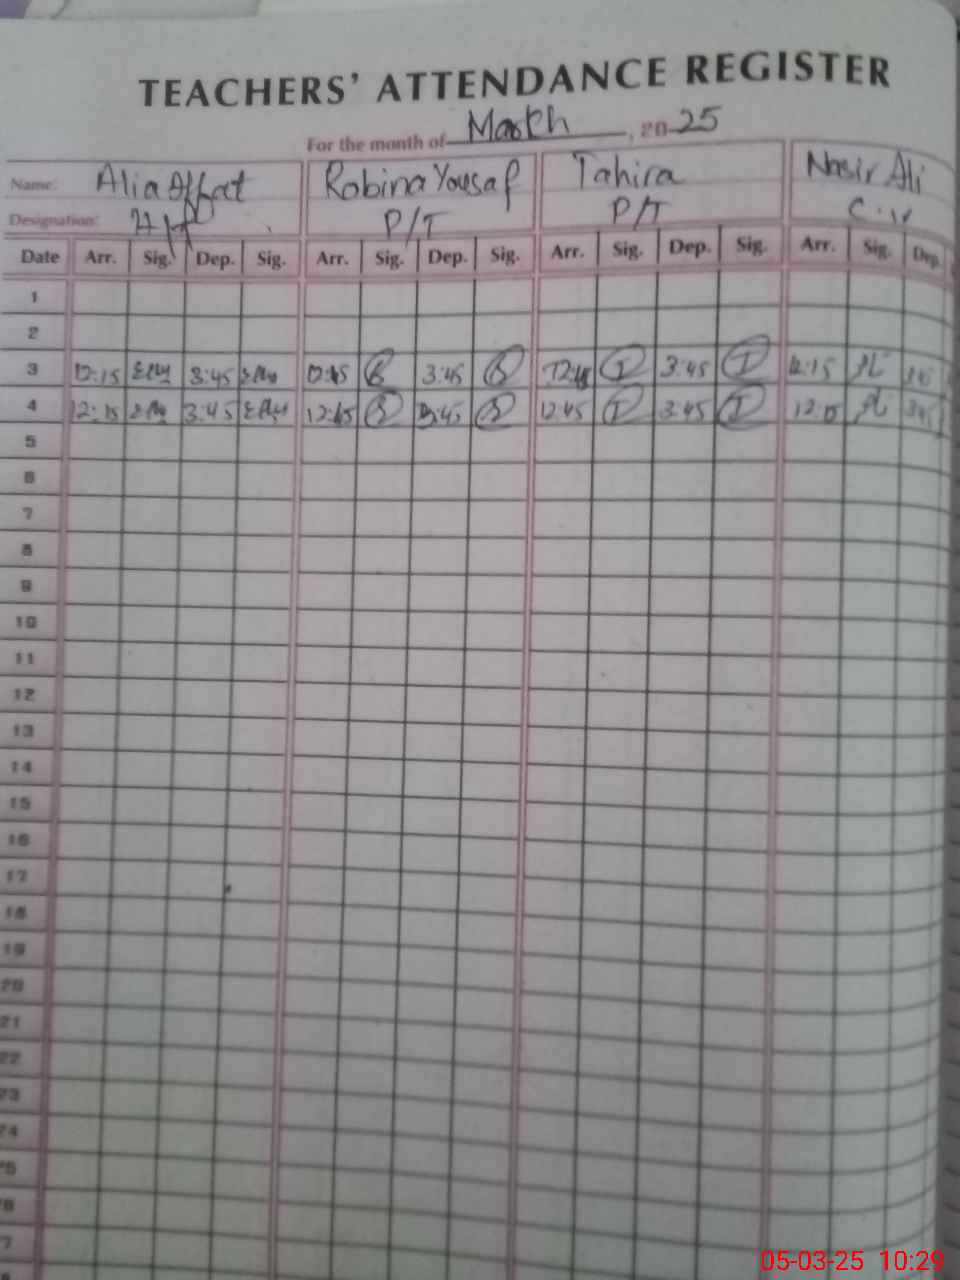 TEACHERS' ATTENDANCE REGISTER
For the month of March, 2025
Name: Alia Affat Robina Yousaf Tahira Nasir Ali
Designation: P/T P/T
Date Arr. Sig. Dep. Sig. Arr. Sig. Dep. Sig. Arr. Sig. Dep. Sig. Arr. Sig. Dep.
1
2
3 12:15 3:45 12:45 3:45 12:45 3:45 12:15
4 12:15 3:45 12:45 3:45 12:45 3:45 12:15
5
6
7
8
9
10
11
12
13
14
15
16
17
18
19
20
21
22
23
24
25
26
7
05-03-25 10:29